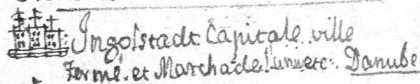 Ingolstadt Capitale ville
fermé et Marchade l'univers. Danubi